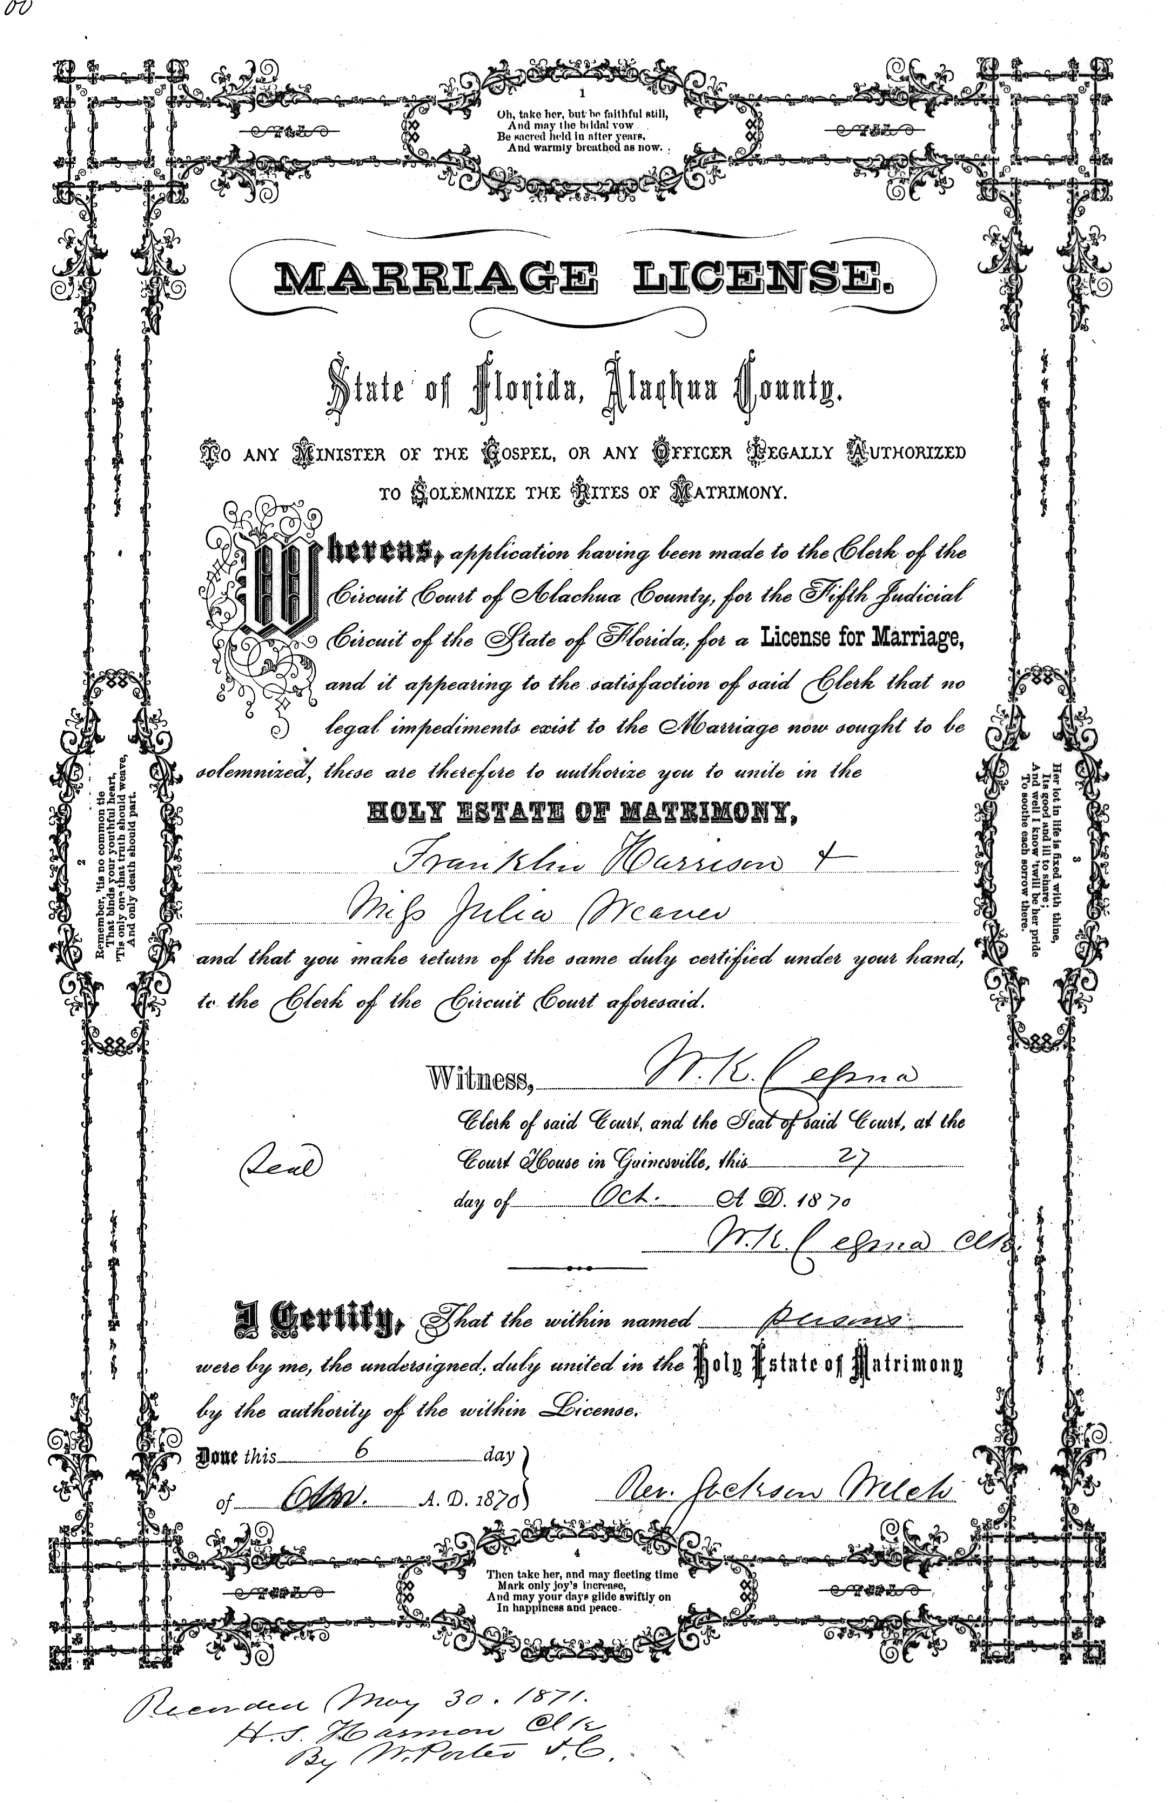 00
1
Oh, take her, but be faithful still,
And may the bridal vow
Be sacred held in after years,
And warmly breathed as now.
MARRIAGE LICENSE.
State of Florida, Alachua County.
TO ANY MINISTER OF THE GOSPEL, OR ANY OFFICER LEGALLY AUTHORIZED
TO SOLEMNIZE THE RITES OF MATRIMONY.
Whereas, application having been made to the Clerk of the
Circuit Court of Alachua County, for the Fifth Judicial
Circuit of the State of Florida, for a License for Marriage,
and it appearing to the satisfaction of said Clerk that no
legal impediments exist to the Marriage now sought to be
solemnized, these are therefore to authorize you to unite in the
HOLY ESTATE OF MATRIMONY,
Franklin Harrison &
Miss Julia Weaver
and that you make return of the same duly certified under your hand,
to the Clerk of the Circuit Court aforesaid.
Witness, W. K. Cessna
Clerk of said Court, and the Seal of said Court, at the
Seal
Court House in Gainesville, this 27
day of Oct. A. D. 1870
W. K. Cessna Clk.
I Certify, That the within named persons
were by me, the undersigned, duly united in the Holy Estate of Matrimony
by the authority of the within License.
Done this 6 day
of A. D. 1870
Rev. Jackson Welch
2
Remember, 'tis no common tie
That binds your youthful heart,
'Tis only one that truth should weave,
And only death should part.
3
Her lot in life is fixed with thine,
Its good and ill to share;
And well I know 'twill be her pride
To soothe each sorrow there.
4
Then take her, and may fleeting time
Mark only joy's increase,
And may your days glide swiftly on
In happiness and peace.
Recorded May 30. 1871.
H. S. Harmon Clk
By W. Porter D. C.